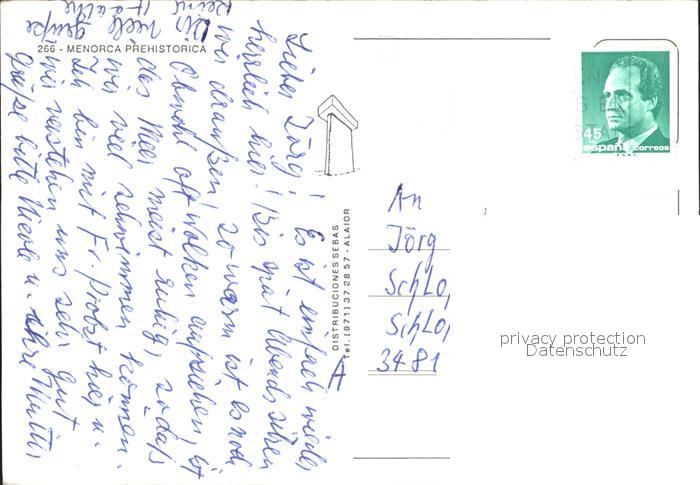 266 - MENORCA PREHISTORICA
Lieber Jörg!
Es ist einfach wieder
herrlich hier! Bis spät abends sitzen
wir draußen, so warm ist es noch
Obwohl oft Wolken aufziehen, ist
das Meer meist ruhig, sodaß
wir viel schwimmen können.
Ich bin mit Fr. Probst hier u.
wir verstehen uns sehr gut
Grüße bitte Nicole u. ihre Mutti
viele
Grüße
DISTRIBUCIONES SEBAS
Tel. (971) 37 28 57 - ALAIOR
A
45
españa correos
F.N.M.T.
An
Jörg
Schlo
Schlo
3481
privacy protection
Datenschutz